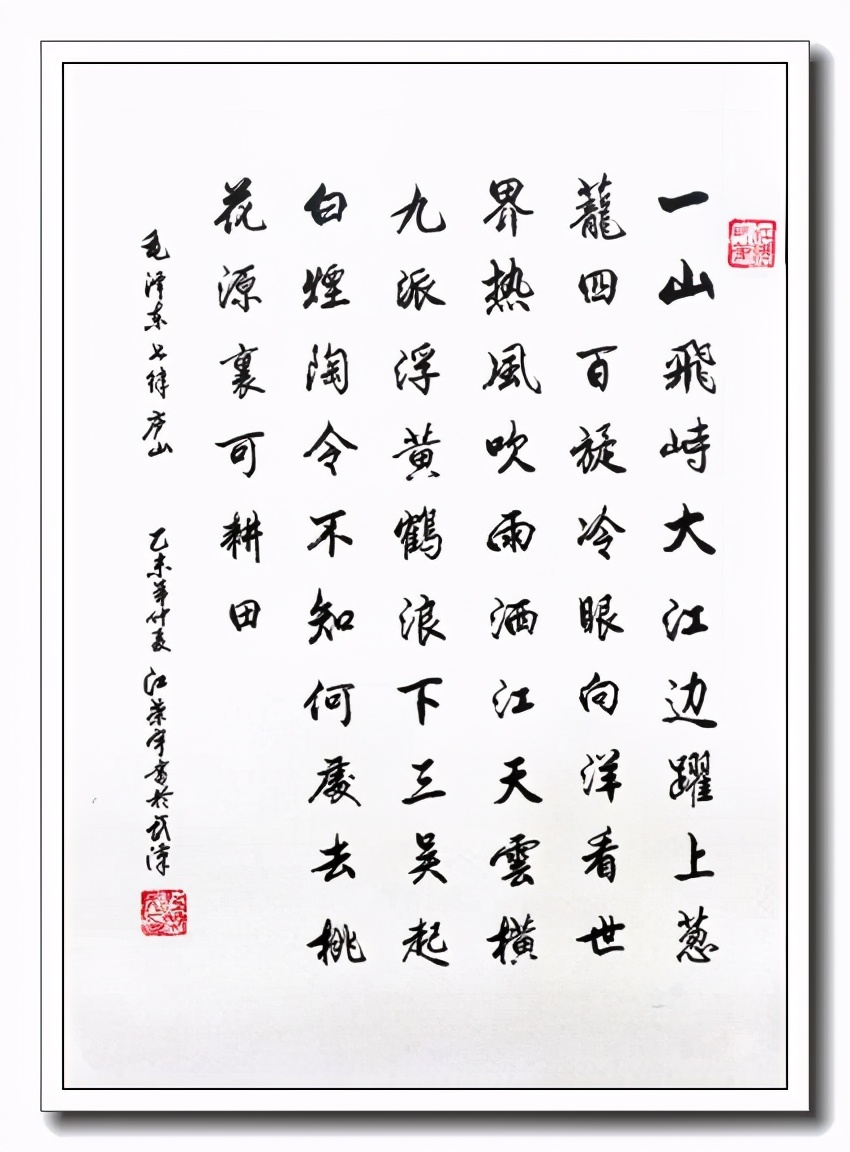 一山飛峙大江边躍上葱
蘢四百旋冷眼向洋看世
界热風吹雨洒江天雲横
九派浮黄鶴浪下三吴起
白煙陶令不知何處去桃
花源裏可耕田
毛泽东七律庐山 乙未年仲夏 江荣宇書於武漢